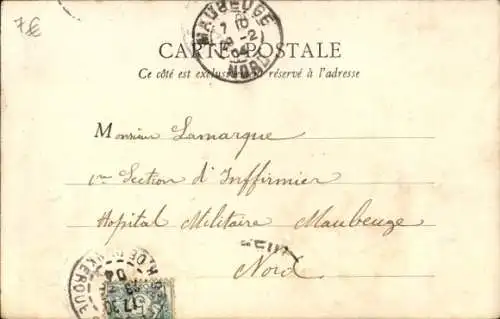 7€
MAUBEUGE
NORD
CARTE POSTALE
Ce côté est exclusivement réservé à l'adresse
Monsieur Lamarque
1re Section d'Inffirmier
Hopital Militaire Maubeuge
Nord
17 30
04